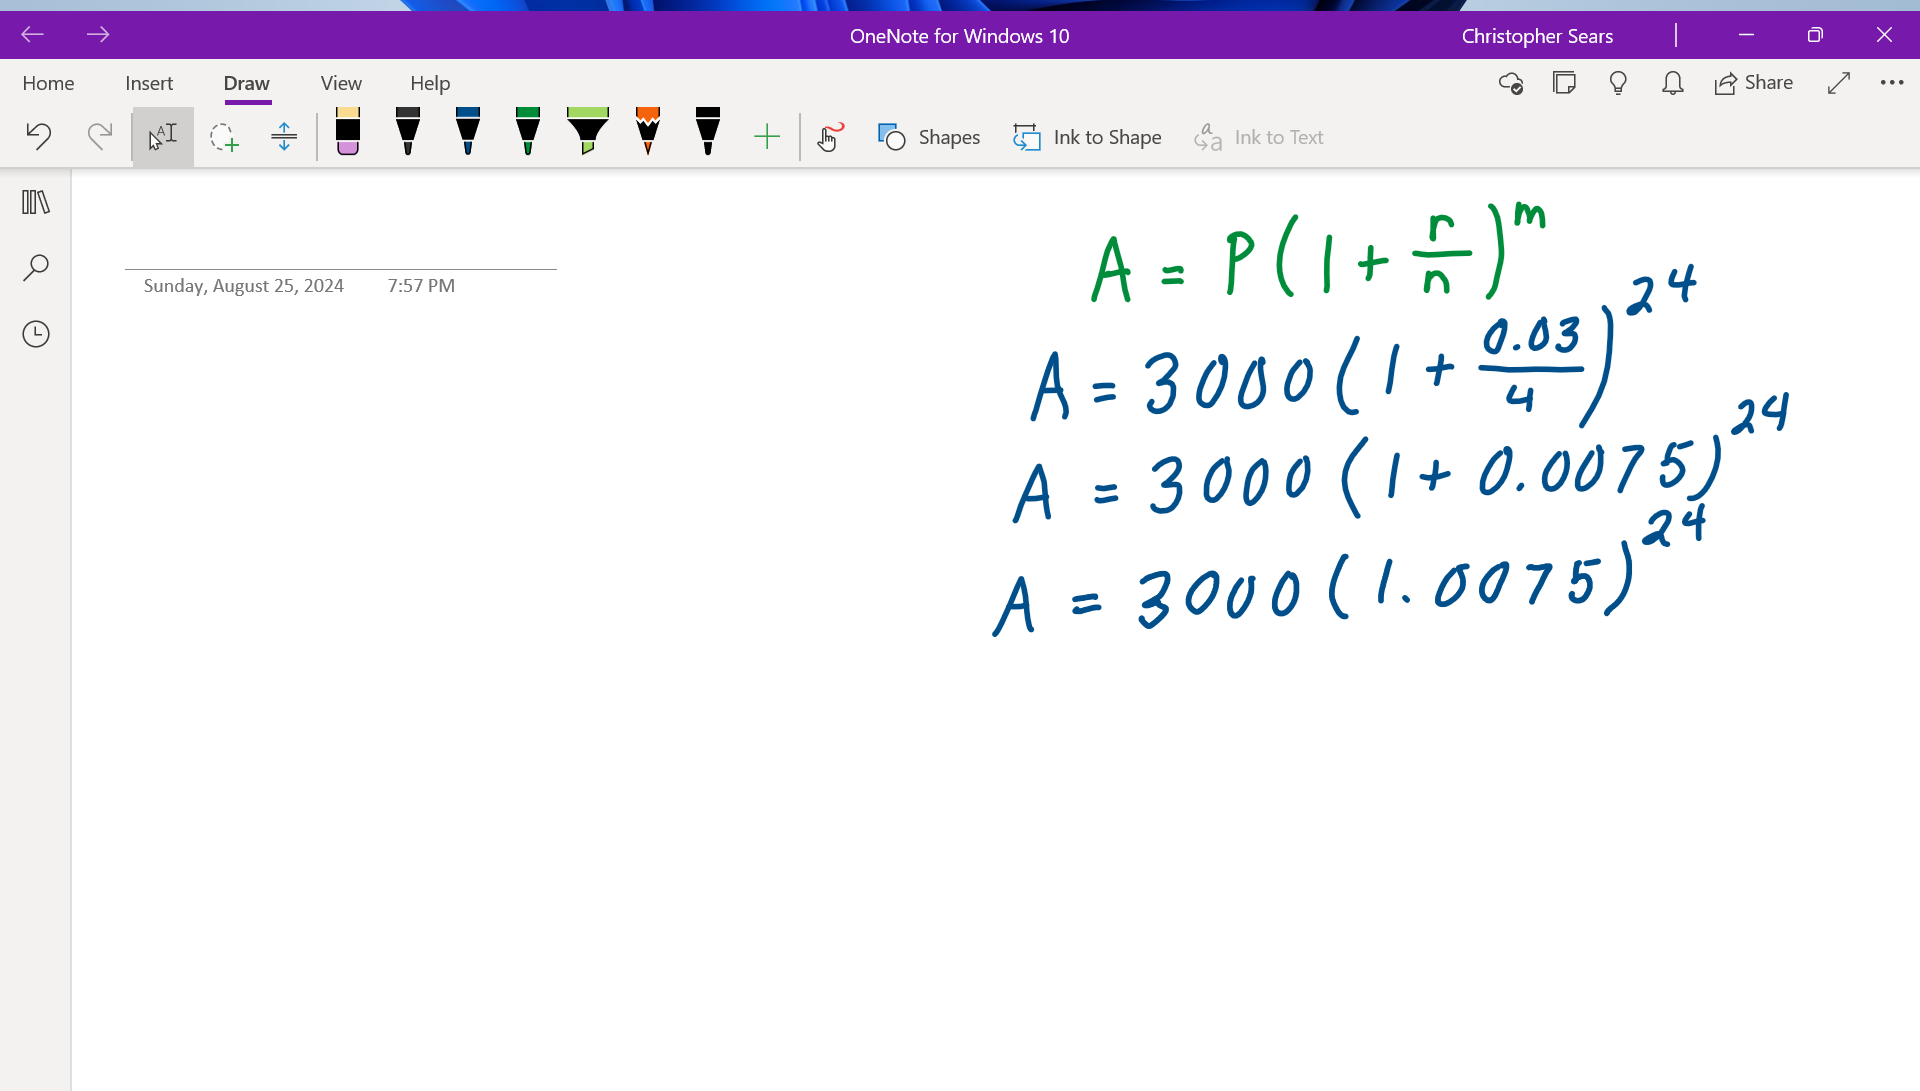 OneNote for Windows 10
Christopher Sears
Home Insert Draw View Help
Share
Shapes Ink to Shape Ink to Text
Sunday, August 25, 2024 7:57 PM
A = P(1 + r/n)^m
A = 3000(1 + 0.03/4)^24
A = 3000(1 + 0.0075)^24
A = 3000(1.0075)^24